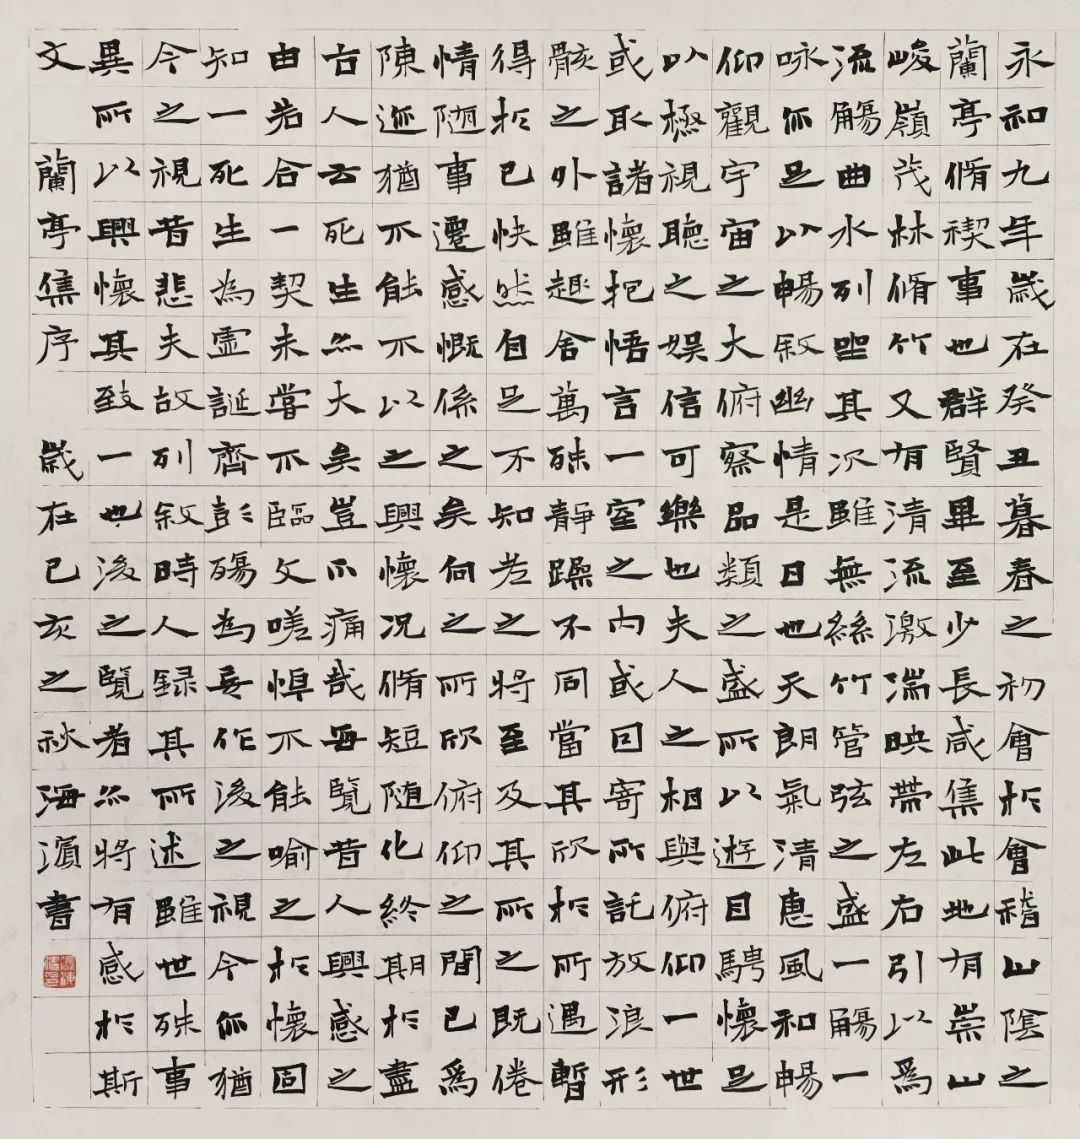 永和九年歲在癸丑暮春之初會於會稽山陰之
蘭亭脩禊事也群賢畢至少長咸集此地有崇山
峻嶺茂林脩竹又有清流激湍映帶左右引以為
流觴曲水列坐其次雖無絲竹管弦之盛一觴一
咏亦足以暢敘幽情是日也天朗氣清惠風和暢
仰觀宇宙之大俯察品類之盛所以遊目騁懷足
以極視聽之娛信可樂也夫人之相與俯仰一世
或取諸懷抱悟言一室之內或因寄所託放浪形
骸之外雖趣舍萬殊靜躁不同當其欣於所遇暫
得於己快然自足不知老之將至及其所之既倦
情隨事遷感慨係之矣向之所欣俯仰之間已為
陳迹猶不能不以之興懷況脩短隨化終期於盡
古人云死生亦大矣豈不痛哉每覽昔人興感之
由若合一契未嘗不臨文嗟悼不能喻之於懷固
知一死生為虛誕齊彭殤為妄作後之視今亦猶
今之視昔悲夫故列敘時人錄其所述雖世殊事
異所以興懷其致一也後之覽者亦將有感於斯
文 蘭亭集序 歲在己亥之秋海濱書